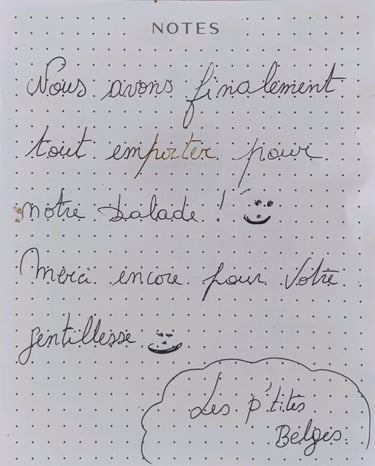 NOTES
Nous avons finalement
tout emporter pour
notre balade ! 
Merci encore pour votre
gentillesse
Les p'tites
Belges.